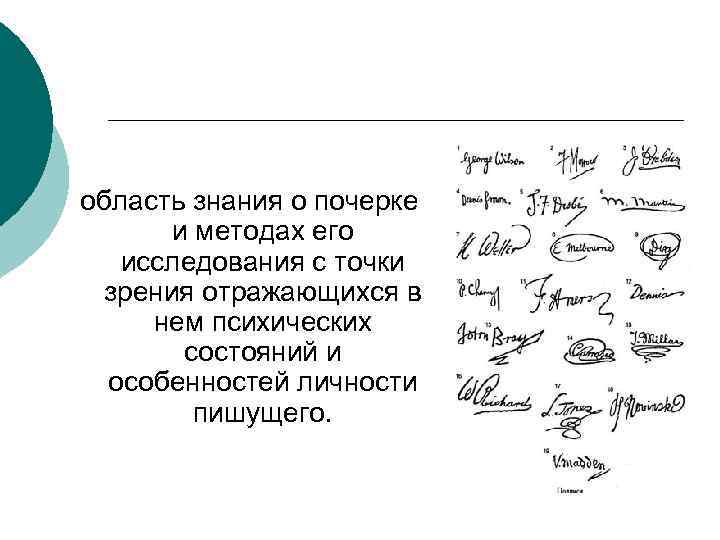 область знания о почерке
и методах его
исследования с точки
зрения отражающихся в
нем психических
состояний и
особенностей личности
пишущего.
1 George Wilson
2
3
4 Dennis
5 J. F. Desbi
6 M. Mantin
7 H Weller
8 E. Melbourne
9
10 P. Cherry
11 F. Aners
12 Dennis
13 John Bray
14
15 J. Millar
16
17 L. Jones
18 Nowinski
19 V. madden